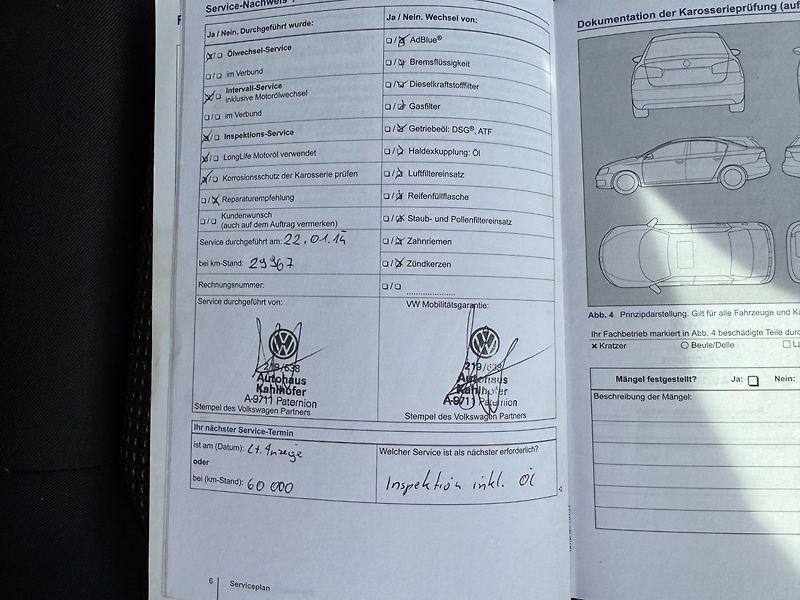 Service-Nachweis
Ja / Nein. Durchgeführt wurde:
Ölwechsel-Service
im Verbund
Intervall-Service
inklusive Motorölwechsel
im Verbund
Inspektions-Service
LongLife Motoröl verwendet
Korrosionsschutz der Karosserie prüfen
Reparaturempfehlung
Kundenwunsch
(auch auf dem Auftrag vermerken)
Service durchgeführt am: 22.01.14
bei km-Stand: 29967
Rechnungsnummer:
Service durchgeführt von:
219/638
Autohaus
Kahlhofer
A-9711 Paternion
Stempel des Volkswagen Partners
Ja / Nein. Wechsel von:
AdBlue®
Bremsflüssigkeit
Dieselkraftstofffilter
Gasfilter
Getriebeöl: DSG®, ATF
Haldexkupplung: Öl
Luftfiltereinsatz
Reifenfüllflasche
Staub- und Pollenfiltereinsatz
Zahnriemen
Zündkerzen
VW Mobilitätsgarantie:
219/638
Autohaus
Kahlhofer
A-9711 Paternion
Stempel des Volkswagen Partners
Ihr nächster Service-Termin
ist am (Datum): Lt. Anzeige
oder
bei (km-Stand): 60 000
Welcher Service ist als nächster erforderlich?
Inspektion inkl. Öl
6 Serviceplan
Dokumentation der Karosserieprüfung (auf
Abb. 4 Prinzipdarstellung. Gilt für alle Fahrzeuge und Ka
Ihr Fachbetrieb markiert in Abb. 4 beschädigte Teile durc
Kratzer Beule/Delle La
Mängel festgestellt? Ja: Nein:
Beschreibung der Mängel: